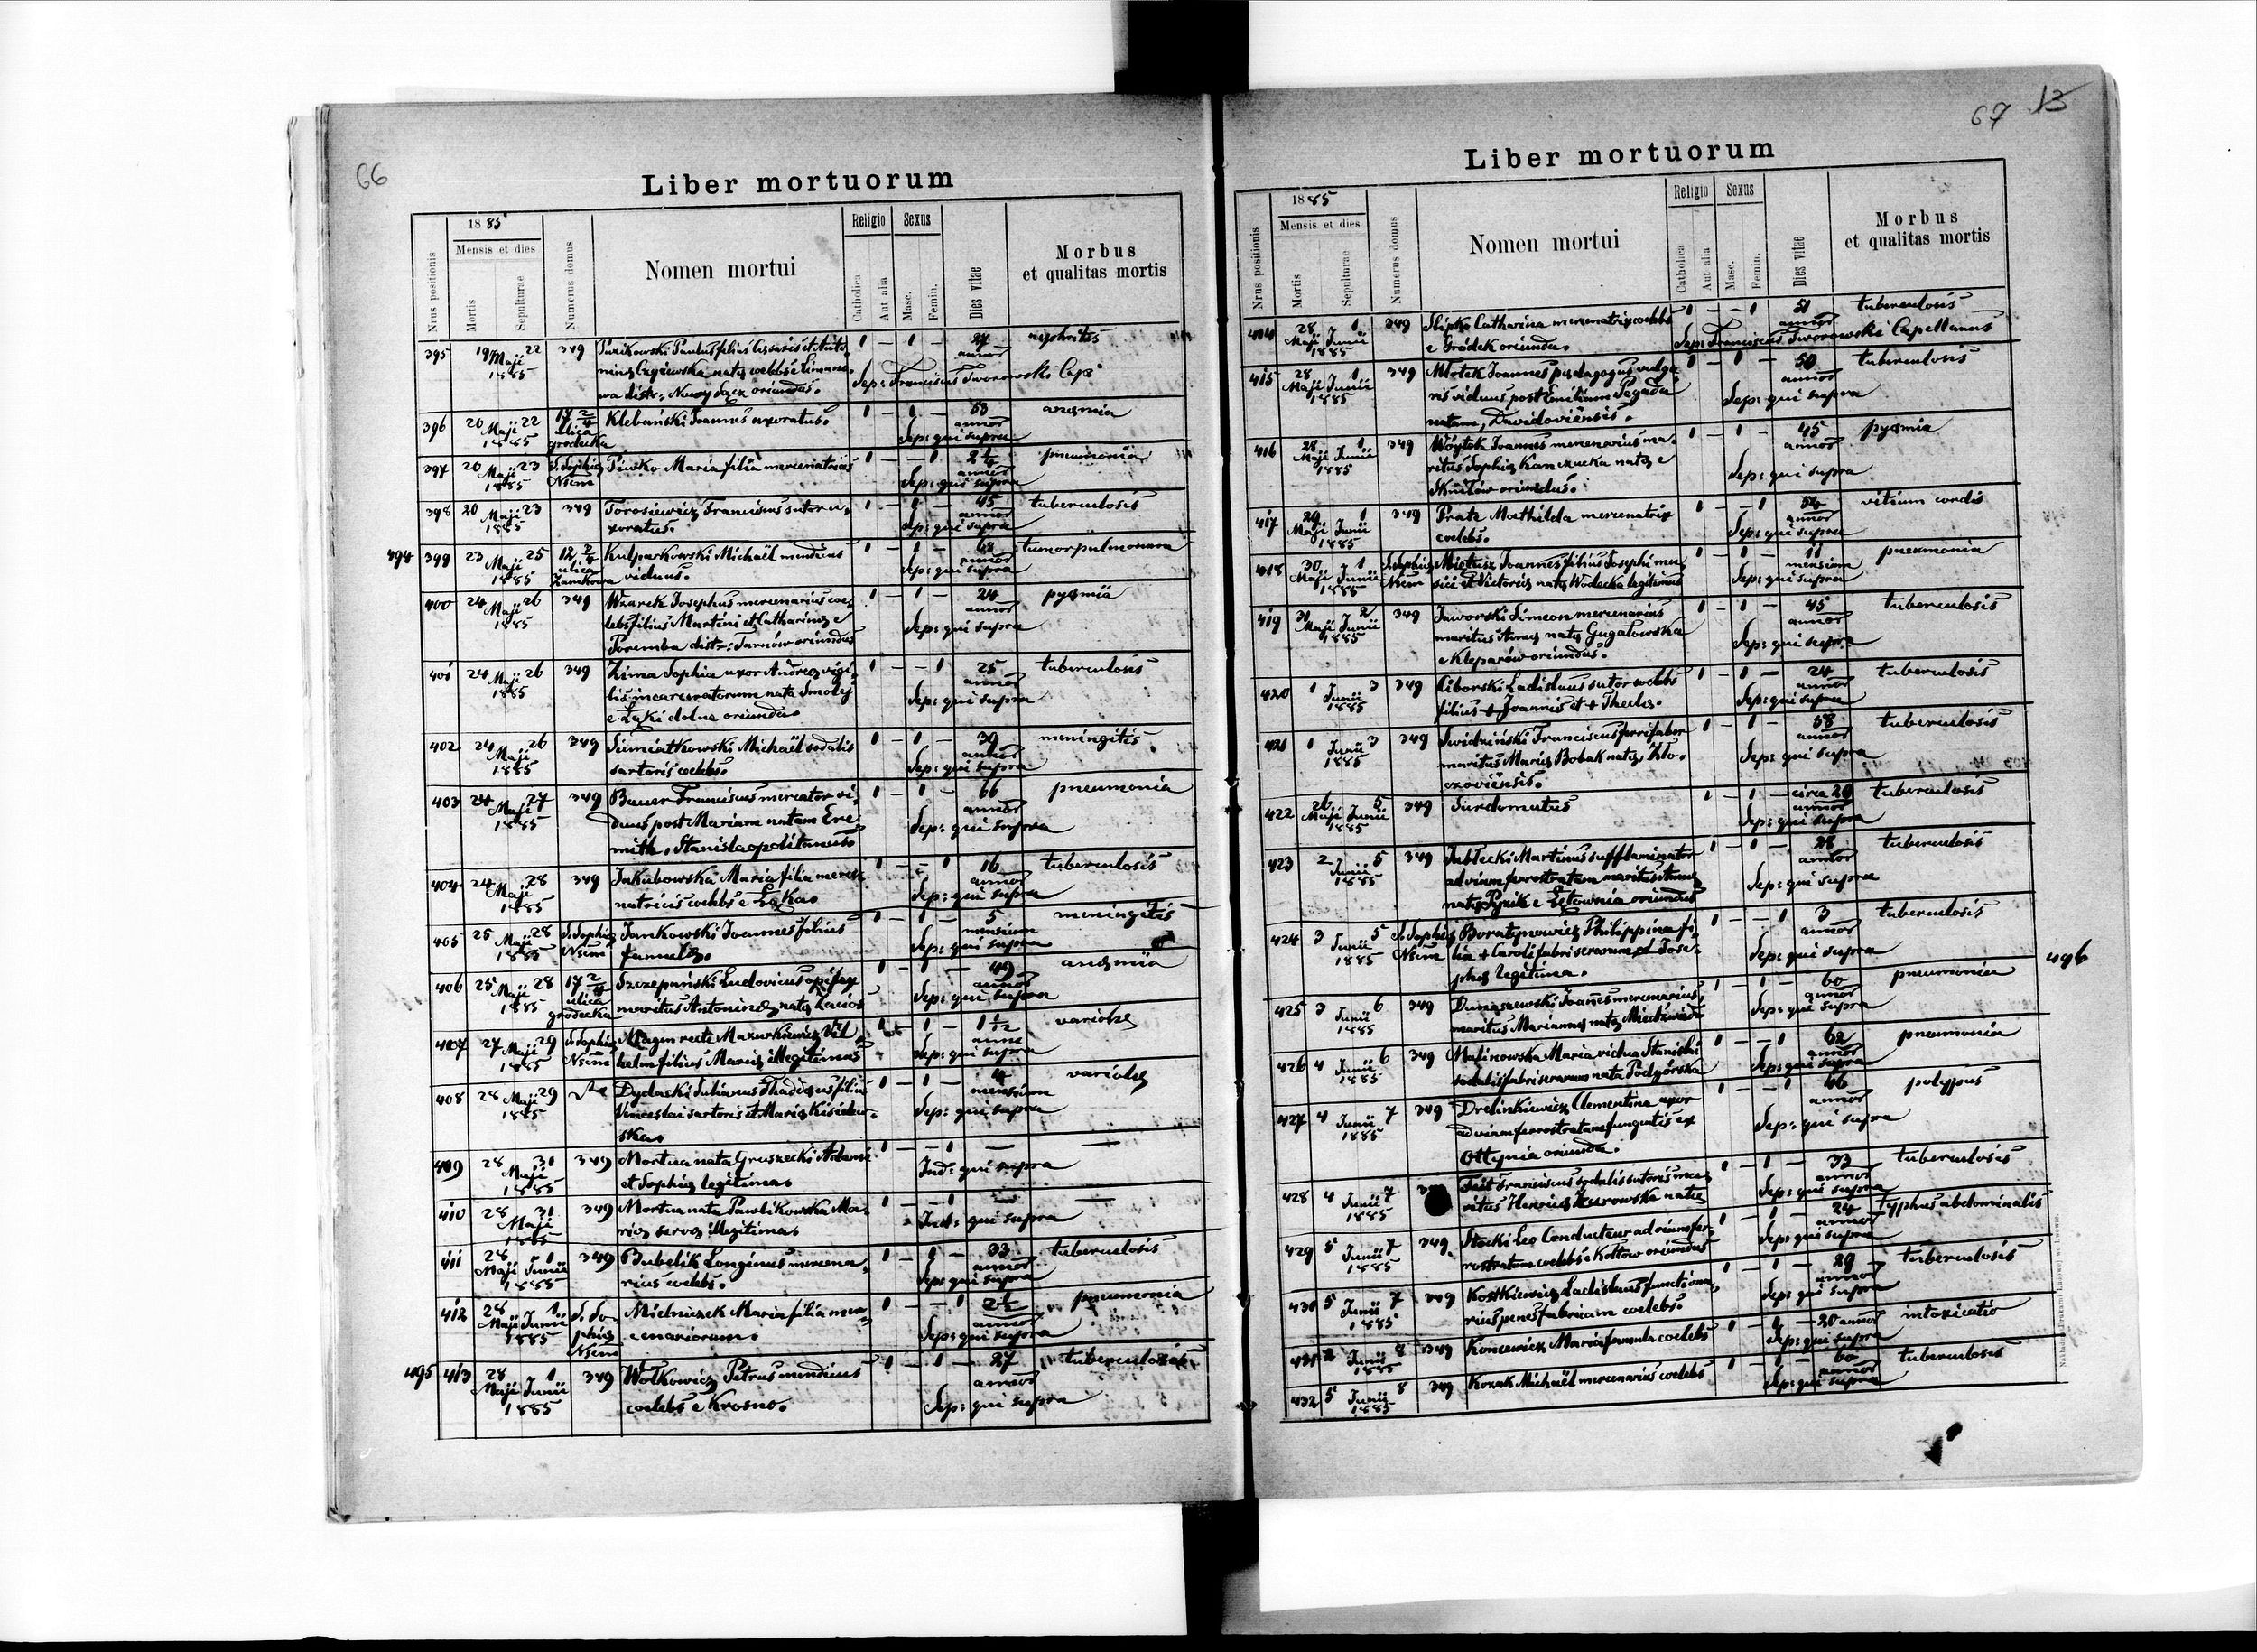 66
Liber mortuorum
1885
Religio Sexus
Mensis et dies
Nrus positionis Mortis Sepulturae Numerus domus Nomen mortui Catholica Aut alia Masc. Femin. Dies vitae Morbus
et qualitas mortis
395 19 Maji 22 349 Paulus filius Cesaris et Anto- 1 - 1 - 27 nephritis
1885 nata coelebs e Limano- annor
wa distr. Nowy Sącz oriundus. Sep: Franciscus Tworowski Cap:
396 20 Maji 22 17 2/4 Klebański Joannes uxoratus. 1 - 1 - 53 anæmia
1885 ulica annor
grodecka Sep: qui supra
397 20 Maji 23 S. Sophiæ Piwko Maria filia mercenariæ 1 - - 1 2 1/2 pneumonia
1885 Nsem annor
Sep: qui supra
398 20 Maji 23 349 Torosiewicz Franciscus sutor u- 1 - 1 - 45 tuberculosis
1885 xoratus. annor
Sep: qui supra
494 399 23 Maji 25 12 2/4 Kulparkowski Michaël mendicus 1 - 1 - 48 tumor pulmonum
1885 ulica viduus. annor
Zamkowa Sep: qui supra
400 24 Maji 26 349 Wzarek Josephus mercenarius coe- 1 - 1 - 24 pyæmia
1885 lebs filius Martini et Catharinæ e annor
Poremba distr: Tarnów oriundus Sep: qui supra
401 24 Maji 26 349 Zima Sophia uxor Andreæ vigi- 1 - - 1 25 tuberculosis
1885 lis incarceratorum nata Smolej annor
e Łąki dolne oriunda Sep: qui supra
402 24 Maji 26 349 Siemiatkowski Michaël sodalis 1 - 1 - 39 meningitis
1885 sartoris coelebs. annor
Sep: qui supra
403 24 Maji 27 349 Bauer Franciscus mercator vi- 1 - 1 - 66 pneumonia
1885 duus post Mariam natam Ere- annor
mith, Stanislaopolitanus Sep: qui supra
404 24 Maji 28 349 Jakubowska Maria filia merce- 1 - - 1 16 tuberculosis
1885 natricis coelebs e Łąka annor
Sep: qui supra
405 25 Maji 28 S. Sophiæ Jankowski Joannes filius 1 - 1 - 5 meningitis
1885 Nsem famulæ. mensium
Sep: qui supra
406 25 Maji 28 17 2/4 Szczepański Ludovicus opifex 1 - 1 - 49 anæmia
1885 ulica maritus Antoninæ natæ Lacios annor
grodecka Sep: qui supra
407 27 Maji 29 S. Sophiæ Magen recte Mazurkiewicz Vil- 1 - 1 - 1 1/2 variolæ
1885 Nsem helm filius Mariæ illegitimus anni
Sep: qui supra
408 28 Maji 29 Dydacki Julianus Thaddæus filius 1 - 1 - 4 variolæ
1885 Venceslai sartoris et Mariæ Kisielew- mensium
ska Sep: qui supra
409 28 31 349 Mortua nata Gruszecki Adami 1 - 1 - -
Maji et Sophiæ legitima Ind: qui supra
1885
410 28 31 349 Mortua nata Pawlikowska Ma- 1 - 1 - -
Maji riæ servæ illegitima Ind: qui supra
1885
411 28 1 349 Bubelik Longinus mercena- 1 - 1 - 33 tuberculosis
Maji Junii rius coelebs. annor
1885 Sep: qui supra
412 28 1 S. So- Mielniczek Maria filia mer- 1 - - 1 2 1/2 pneumonia
Maji Junii phiæ cenariorum. annor
1885 Nsem Sep: qui supra
495 413 28 1 349 Wołkowicz Petrus mendicus 1 - 1 - 27 tuberculosis
Maji Junii coelebs e Krosno. annor
1885 Sep: qui supra
67 13
Liber mortuorum
1885
Religio Sexus
Mensis et dies
Nrus positionis Mortis Sepulturae Numerus domus Nomen mortui Catholica Aut alia Masc. Femin. Dies vitae Morbus
et qualitas mortis
414 28 1 349 Slipka Catharina mercenatrix coelebs 1 - - 1 51 tuberculosis
Maji Junii e Gródek oriunda. annor
1885 Sep: Franciscus Tworowski Capellanus
415 28 1 349 Młotek Joannes pædagogus vulga- 1 - 1 - 50 tuberculosis
Maji Junii ris viduus post Emiliam Pegada annor
1885 natam, Davidoviensis. Sep: qui supra
416 28 1 349 Wójtek Joannes mercenarius ma- 1 - 1 - 45 pyæmia
Maji Junii ritus Sophiæ Kanczucka natæ e annor
1885 Sknilów oriundus. Sep: qui supra
417 29 1 349 Pratz Mathilda mercenatrix 1 - - 1 54 vitium cordis
Maji Junii coelebs. annor
1885 Sep: qui supra
418 30 1 S. Sophiæ Miętusz Joannes filius Josephi mu- 1 - 1 - 11 pneumonia
Maji Junii Nsem sici et Victoriæ natæ Wodecka legitimus mensium
1885 Sep: qui supra
419 31 2 349 Jaworski Simeon mercenarius 1 - 1 - 45 tuberculosis
Maji Junii maritus Annæ natæ Gugałowska annor
1885 e Kleparów oriundus. Sep: qui supra
420 1 Junii 3 349 Ciborski Ladislaus sutor coelebs 1 - 1 - 24 tuberculosis
1885 filius + Joannis et + Theclæ. annor
Sep: qui supra
421 1 Junii 3 349 Swidziński Franciscus ferrifaber 1 - 1 - 58 tuberculosis
1885 maritus Mariæ Bobak natæ, Zlo- annor
czoviensis. Sep: qui supra
422 26 5 349 Surdomutus 1 - 1 - circa 20 tuberculosis
Maji Junii annor
1885 Sep: qui supra
423 2 Junii 5 349 Jabłecki Martinus sufflaminator 1 - 1 - 28 tuberculosis
1885 ad viam ferrostratam maritus Annæ annor
natæ Pyzik e Lętownia oriundus Sep: qui supra
424 3 Junii 5 S. Sophiæ Boratynowicz Philippina fi- 1 - - 1 3 tuberculosis
1885 Nsem lia + Caroli fabri serarum et Jose- annor
phæ legitima. Sep: qui supra
496
425 3 Junii 6 349 Dunaszewski Joannes mercenarius 1 - 1 - 60 pneumonia
1885 maritus Mariannæ natæ annor
Sep: qui supra
426 4 Junii 6 349 Malinowska Maria vidua Stanislai 1 - - 1 62 pneumonia
1885 sodalis fabri serarum nata Podgórska annor
Sep: qui supra
427 4 Junii 7 349 Drelinkiewicz Clementina uxor 1 - - 1 66 polypus
1885 ad viam ferrostratam fungentis ex annor
Ottynia oriunda. Sep: qui supra
428 4 Junii 7 Franciscus sodalis sutoris ma- 1 - 1 - 33 tuberculosis
1885 ritus Henricæ Zurowska natæ annor
Sep: qui supra
429 5 Junii 7 349 Stocki Leo Conducteur ad viam fer- 1 - 1 - 24 typhus abdominalis
1885 rostratam coelebs e Kołtow oriundus annor
Sep: qui supra
430 5 Junii 7 349 Kostkiewicz Ladislaus functiona- 1 - 1 - 29 tuberculosis
1885 rius penes fabricam coelebs. annor
Sep: qui supra
431 Junii 8 349 Koncewicz Maria famula coelebs 1 - - 20 annor intoxicatio
1885 Sep: qui supra
432 5 Junii 8 349 Kozak Michaël mercenarius coelebs 1 - 1 - 60 tuberculosis
1885 annor
Sep: qui supra
Nakładem Drukarni Ludowej we Lwowie